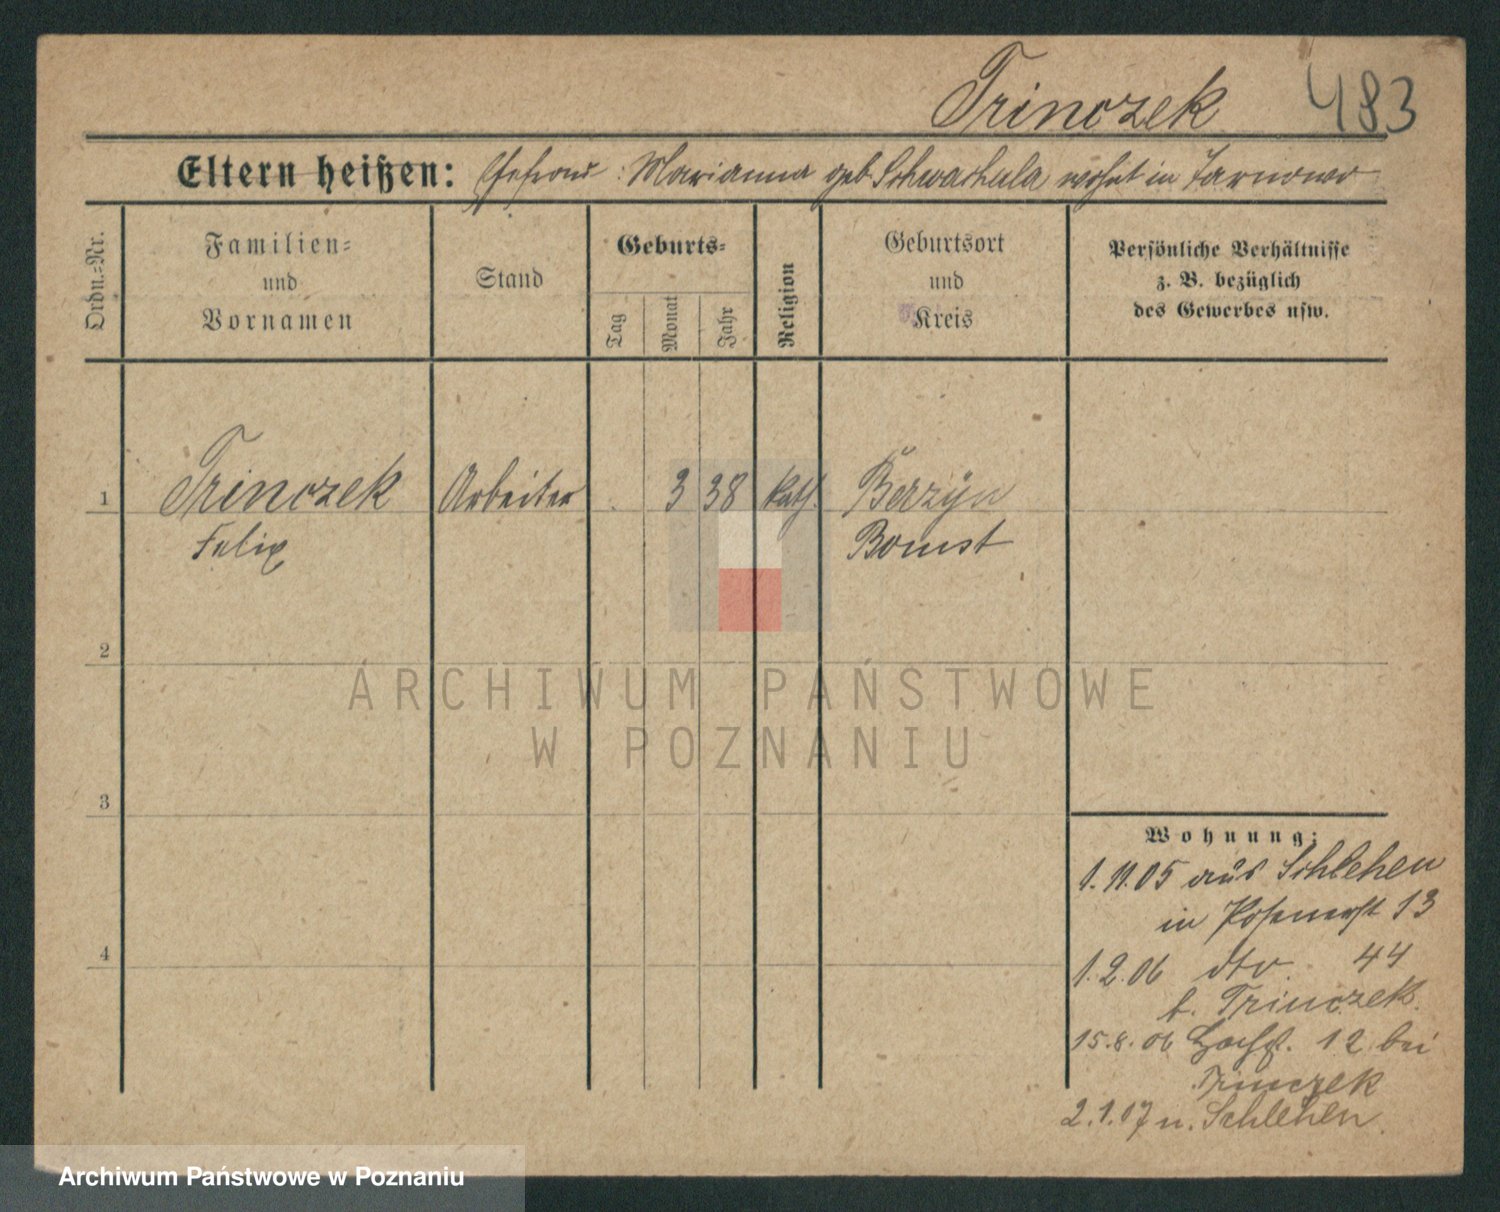 Trinczek 483
Eltern heißen: Ehefrau: Marianna geb. Schwachula wohnt in Tarnowo
Ordn.=Nr.
Familien=
und
Vornamen
Stand
Geburts=
Tag
Monat
Jahr
Religion
Geburtsort
und
Kreis
Persönliche Verhältnisse
z. B. bezüglich
des Gewerbes usw.
1 Trinczek Arbeiter . 3 38 kath. Berzyn
Felix Bomst
2
ARCHIWUM PAŃSTWOWE
W POZNANIU
3
Wohnung:
1.11.05 aus Schlehen
in Posenerst 13
4
1.2.06 dto. 44
b. Trinczek.
15.8.06 12 bei
Trinczek
2.1.07 n. Schlehen.
Archiwum Państwowe w Poznaniu